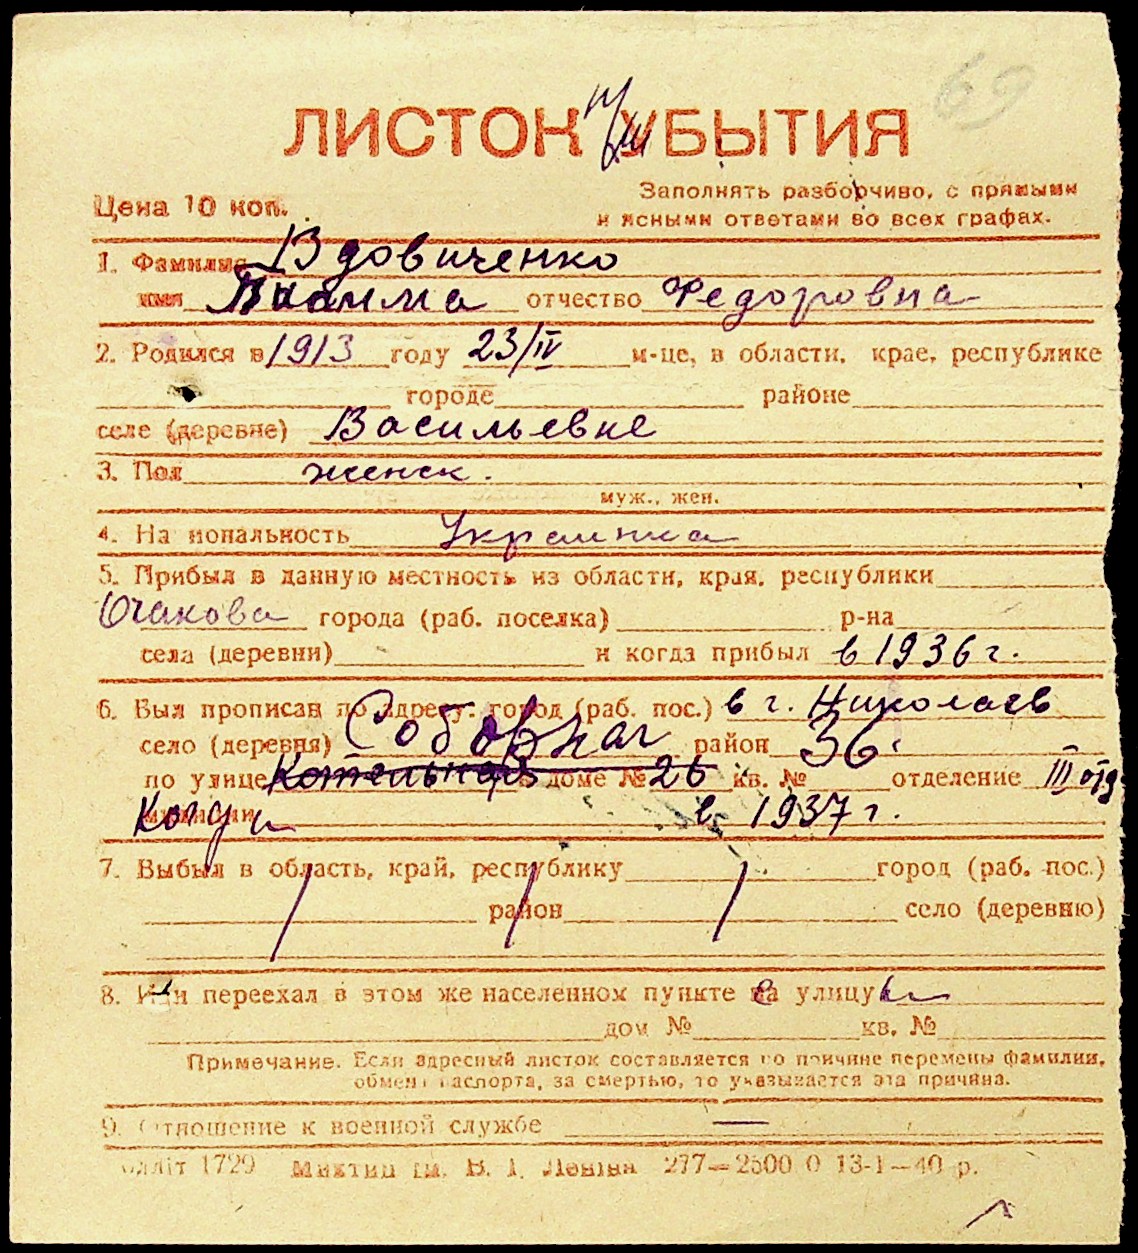 69
ЛИСТОК УБЫТИЯ
Цена 10 коп.
Заполнять разборчиво, с прямыми
и ясными ответами во всех графах.
1. Фамилия Вдовиченко
имя отчество Федоровна
2. Родился в 1913 году 23/IV м-це, в области, крае, республике
городе районе
селе (деревне) Васильевке
3. Пол женск.
муж., жен.
4. Национальность Украинка
5. Прибыл в данную местность из области, края, республики
Очакова города (раб. поселка) р-на
села (деревни) и когда прибыл в 1936 г.
6. Был прописан по адресу: город (раб. пос.) в г. Николаев
село (деревня) Соборная район 36.
по улице Котельная доме № 26 кв. № отделение III отд
милиции Когда в 1937 г.
7. Выбыл в область, край, республику город (раб. пос.)
район село (деревню)
8. Или переехал в этом же населенном пункте на улицу
дом № кв. №
Примечание. Если адресный листок составляется по причине перемены фамилии,
обмена паспорта, за смертью, то указывается эта причина.
9. Отношение к военной службе —
лліт 1729 Миктип ім. В. І. Леніна 277—2500 0 13-1—40 р.